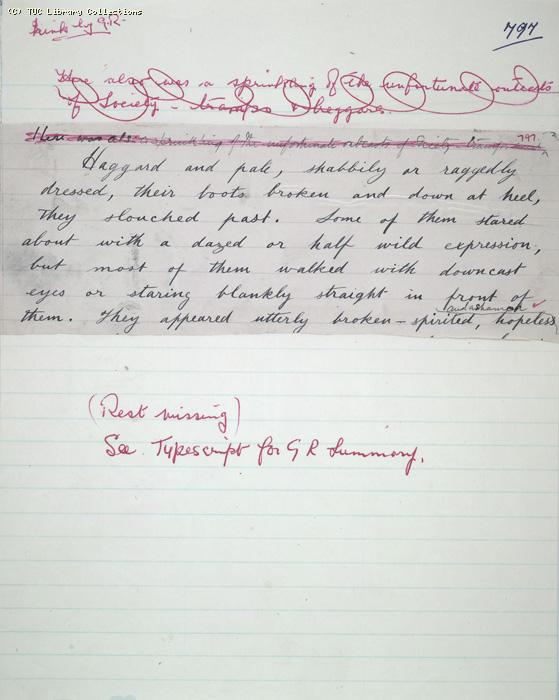 (C) TUC Library Collections
by G.R.
797
Here also was a sprinkling of the unfortunate outcasts
of Society – tramps & beggars.
Here was also a sprinkling of the unfortunate outcasts of Society
797.
Haggard and pale, shabbily or raggedly
dressed, their boots broken and down at heel,
they slouched past. Some of them stared
about with a dazed or half wild expression,
but most of them walked with downcast
eyes or staring blankly straight in front of
and ashamed
them. They appeared utterly broken-spirited, hopeless
(Rest missing)
See Typescript for G R Summary.